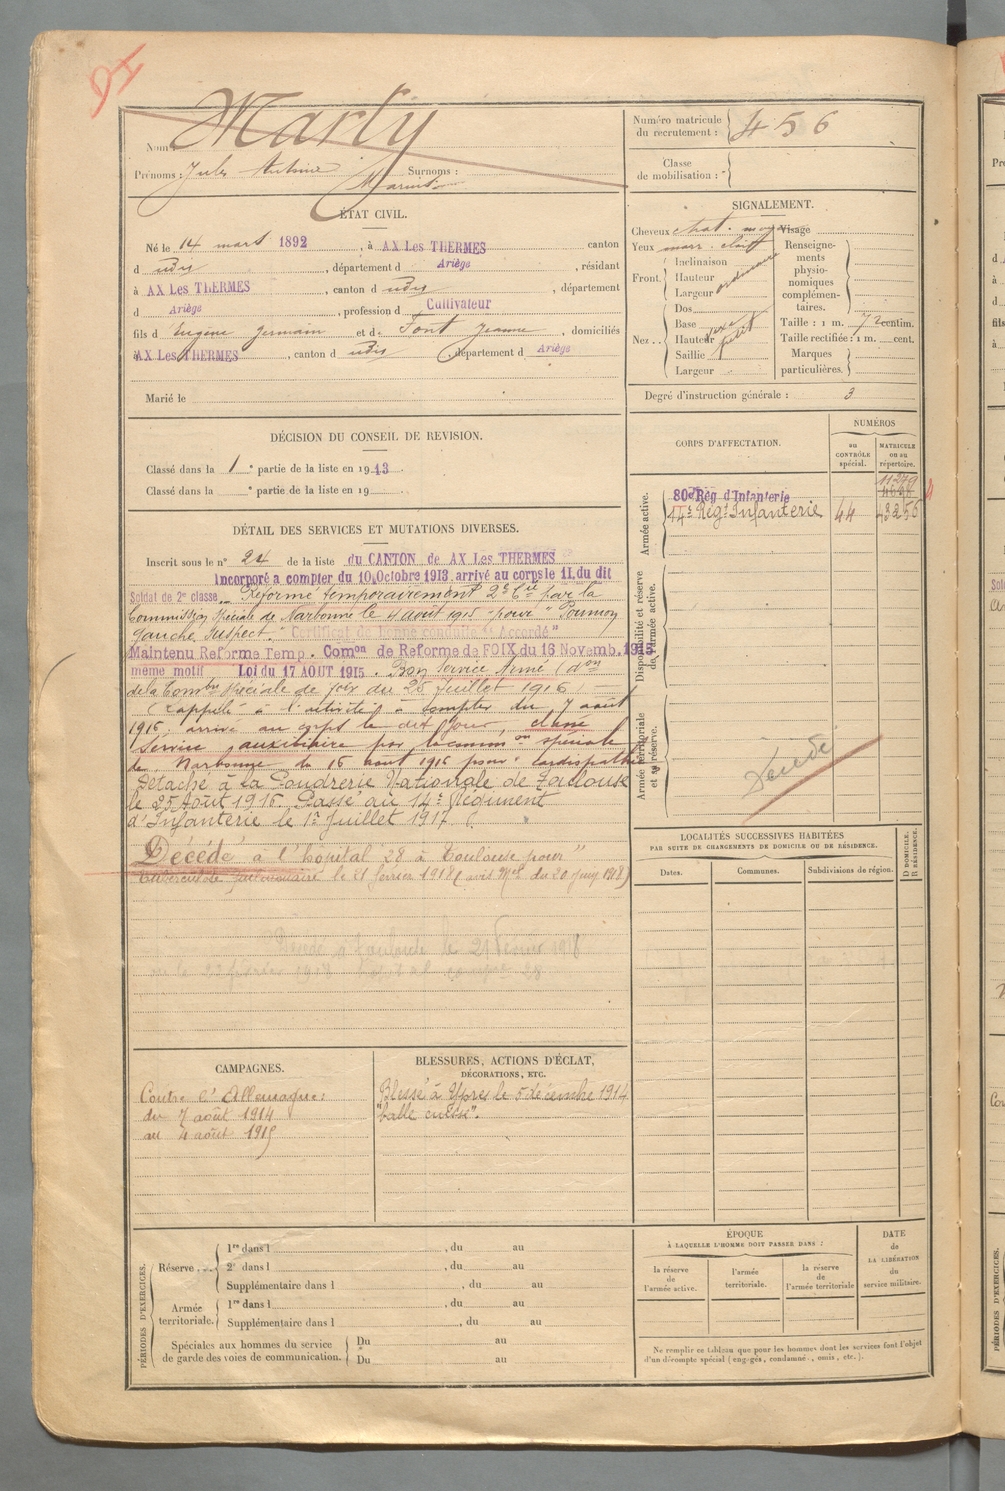 91
Nom : Marty
Prénoms : Jules Antoine Surnoms :
Numéro matricule du recrutement : 456
Classe de mobilisation :
ÉTAT CIVIL.
Né le 14 mars 1892, à AX Les THERMES canton
d udis, département d Ariège, résidant
à AX Les THERMES, canton d udis, département
d Ariège, profession d Cultivateur
fils d Eugène Germain et de Font Jeanne, domiciliés
AX Les THERMES, canton d udis, département d Ariège
Marié le
SIGNALEMENT.
Cheveux chat. moy Visage
Yeux marr. clair
Front. Inclinaison
Hauteur ordinaire
Largeur
Nez . . Dos
Base
Hauteur petit
Saillie
Largeur
Renseignements physionomiques complémentaires.
Taille : 1 m. 72 centim.
Taille rectifiée : 1 m. cent.
Marques particulières.
Degré d'instruction générale : 3
DÉCISION DU CONSEIL DE REVISION.
Classé dans la 1 e partie de la liste en 1913.
Classé dans la e partie de la liste en 19
CORPS D'AFFECTATION.
NUMÉROS
au CONTRÔLE spécial.
MATRICULE ou au répertoire.
Armée active.
11279
80e Rég d'Infanterie
14e Régt Infanterie 44 43256
Disponibilité et réserve de l'armée active.
Armée territoriale et sa réserve.
Décédé
DÉTAIL DES SERVICES ET MUTATIONS DIVERSES.
Inscrit sous le n° 24 de la liste du CANTON de AX Les THERMES
Incorporé a compter du 10 Octobre 1913 arrivé au corps le 11 du dit
Soldat de 2e classe. Réformé temporairement 2e Cie par la
Commission Spéciale de Narbonne le 4 août 1915 pour "Poumon
gauche suspect." Certificat de bonne conduite "Accordé"
Maintenu Reforme Temp. Comon de Reforme de FOIX du 16 Novemb. 1915
même motif Loi du 17 AOUT 1915. Bon Service Armé (don
de la Comon Spéciale de Foix du 25 Juillet 1916)
Rappelé à l'activité à compter du 7 août
1916, arrivé au corps le dit jour, classé
Service auxiliaire par la common spéciale
de Narbonne du 16 aout 1916 pour "cardiopathie
Détaché à la Poudrerie Nationale de Toulouse
le 25 Août 1916. Passé au 14e Régiment
d'Infanterie le 1er Juillet 1917.
Décédé à l'hôpital 28 à Toulouse pour "
tuberculose pulmonaire le 21 février 1918 (avis Mel du 20 1918)
Décédé à Toulouse le 21 Février 1918
LOCALITÉS SUCCESSIVES HABITÉES
PAR SUITE DE CHANGEMENTS DE DOMICILE OU DE RÉSIDENCE.
Dates. Communes. Subdivisions de région. D DOMICILE. R RÉSIDENCE.
CAMPAGNES.
Contre l'Allemagne :
du 7 août 1914
au 4 août 1915
BLESSURES, ACTIONS D'ÉCLAT,
DÉCORATIONS, ETC.
Blessé à Ypres le 5 décembre 1914
"balle cuisse".
PÉRIODES D'EXERCICES.
Réserve . . 1re dans l , du au
2e dans l , du au
Supplémentaire dans l , du au
Armée territoriale. 1re dans l , du au
Supplémentaire dans l , du au
Spéciales aux hommes du service de garde des voies de communication. Du au
Du au
ÉPOQUE
À LAQUELLE L'HOMME DOIT PASSER DANS :
la réserve de l'armée active.
l'armée territoriale.
la réserve de l'armée territoriale
DATE de LA LIBÉRATION du service militaire.
Ne remplir ce tableau que pour les hommes dont les services font l'objet
d'un décompte spécial (engagés, condamnés, omis, etc.).